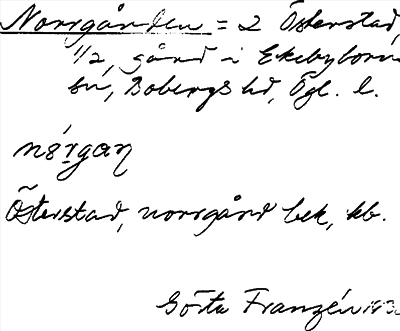 Norrgården = 2 Österstad,
1/2, gård i Ekebyborna
sn, Bobergs hd, Ögl. l.
nórgaṇ
Österstad, norrgård bek, kb.
Gösta Franzén